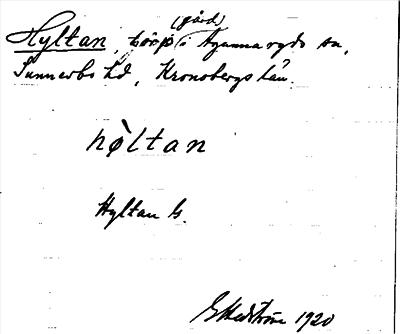 (gård)
Hyltan, torp i Agunnaryds sn,
Sunnerbo hd, Kronobergs län.
hø̀ltan
Hyltan G.
G Hedström 1920